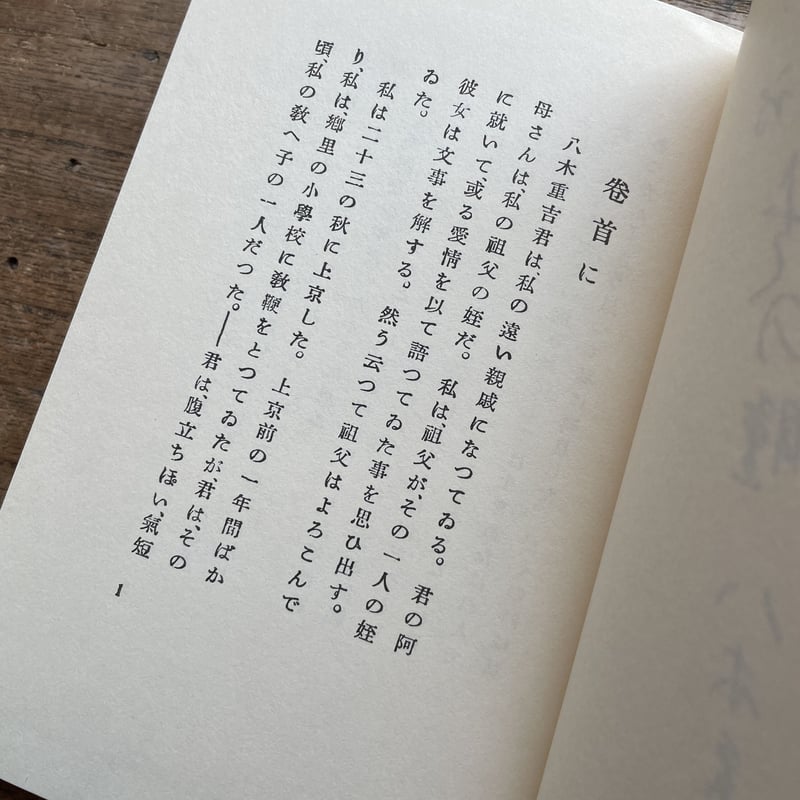 卷首に
八木重吉君は、私の遠い親戚になつてゐる。君の阿
母さんは、私の祖父の姪だ。私は、祖父が、その一人の姪
に就いて、或る愛情を以て語つてゐた事を思ひ出す。
彼女は文事を解する。然う云つて祖父はよろこんで
ゐた。
私は二十三の秋に上京した。上京前の一年間ばか
り、私は、鄕里の小學校に敎鞭をとつてゐたが、君は、その
頃、私の敎へ子の一人だつた。――君は、腹立ちぽい、氣短
1